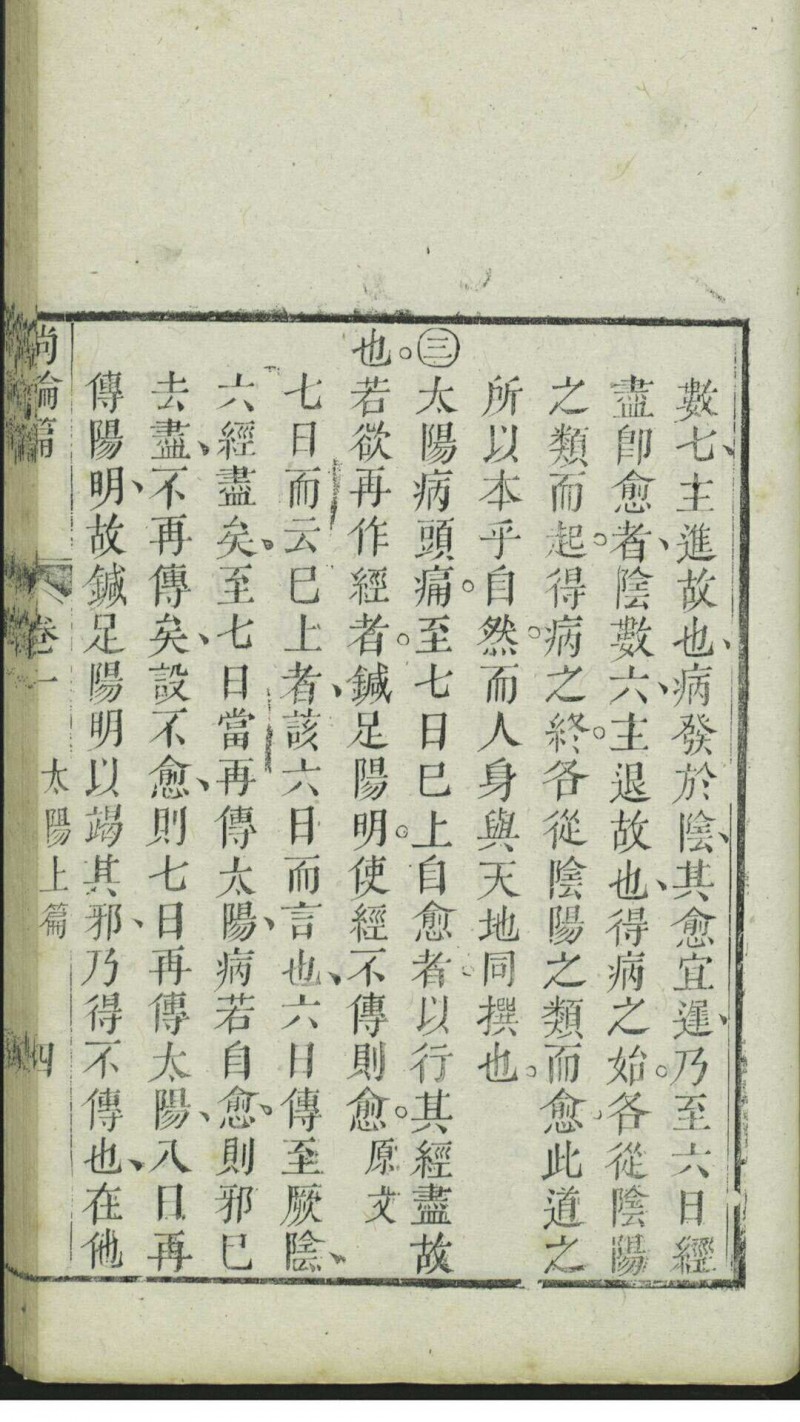 數七、主進故也、病發於陰、其愈宜遲、乃至六日經
盡即愈者、陰數六、主退故也、得病之始。各從陰陽
之類而起。得病之終。各從陰陽之類而愈、此道之
所以本乎自然。而人身與天地同撰也。
㊂太陽病頭痛。至七日巳上自愈者。以行其經盡故
也。若欲再作經者。鍼足陽明。使經不傳則愈。原文
七日而云巳上者、該六日而言也、六日傳至厥陰、
六經盡矣。至七日當再傳太陽、病若自愈。則邪巳
去盡、不再傳矣、設不愈、則七日再傳太陽、八日再
傳陽明、故鍼足陽明以竭其邪、乃得不傳也、在他
尚論篇 卷一 太陽上篇 四